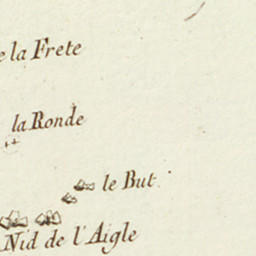 e la Frete
la Ronde
le But
Nid de l'Aigle